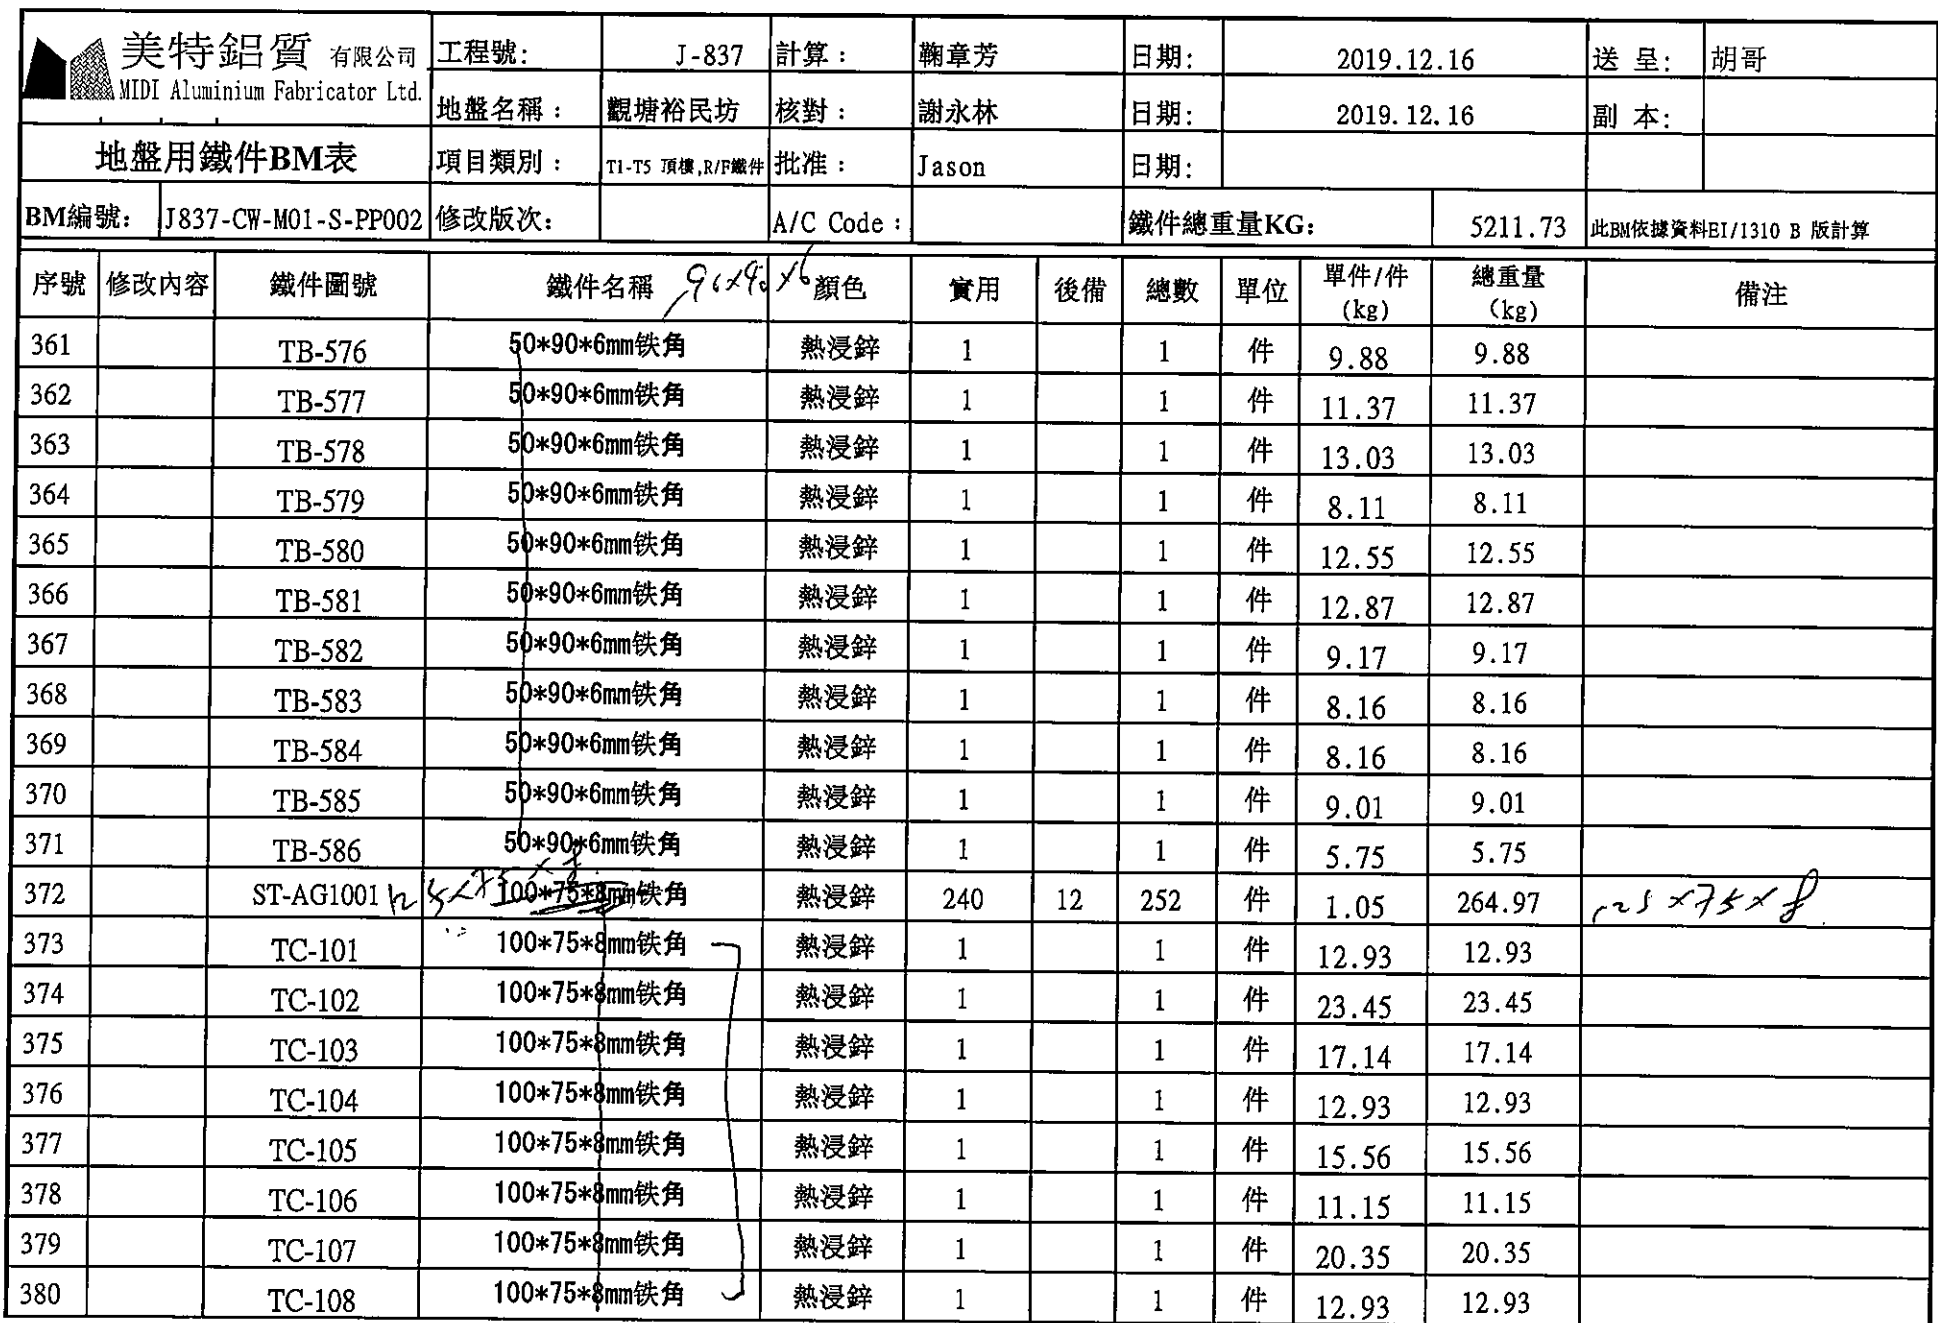 美特鋁質 有限公司 工程號: J-837 計算： 鞠章芳 日期: 2019.12.16 送 呈: 胡哥
MIDI Aluminium Fabricator Ltd. 地盤名稱： 觀塘裕民坊 核對： 謝永林 日期: 2019.12.16 副 本:
地盤用鐵件BM表 項目類別： T1-T5 頂樓,R/F鐵件 批准： Jason 日期:
BM編號: J837-CW-M01-S-PP002 修改版次: A/C Code： 鐵件總重量KG: 5211.73 此BM依據資料EI/1310 B 版計算
序號 修改內容 鐵件圖號 鐵件名稱 顏色 實用 後備 總數 單位 單件/件 (kg) 總重量 (kg) 備注
361 TB-576 50*90*6mm铁角 熱浸鋅 1 1 件 9.88 9.88
362 TB-577 50*90*6mm铁角 熱浸鋅 1 1 件 11.37 11.37
363 TB-578 50*90*6mm铁角 熱浸鋅 1 1 件 13.03 13.03
364 TB-579 50*90*6mm铁角 熱浸鋅 1 1 件 8.11 8.11
365 TB-580 50*90*6mm铁角 熱浸鋅 1 1 件 12.55 12.55
366 TB-581 50*90*6mm铁角 熱浸鋅 1 1 件 12.87 12.87
367 TB-582 50*90*6mm铁角 熱浸鋅 1 1 件 9.17 9.17
368 TB-583 50*90*6mm铁角 熱浸鋅 1 1 件 8.16 8.16
369 TB-584 50*90*6mm铁角 熱浸鋅 1 1 件 8.16 8.16
370 TB-585 50*90*6mm铁角 熱浸鋅 1 1 件 9.01 9.01
371 TB-586 50*90*6mm铁角 熱浸鋅 1 1 件 5.75 5.75
372 ST-AG1001 125×75×8 100*75*8mm铁角 熱浸鋅 240 12 252 件 1.05 264.97 125×75×8
373 TC-101 100*75*8mm铁角 熱浸鋅 1 1 件 12.93 12.93
374 TC-102 100*75*8mm铁角 熱浸鋅 1 1 件 23.45 23.45
375 TC-103 100*75*8mm铁角 熱浸鋅 1 1 件 17.14 17.14
376 TC-104 100*75*8mm铁角 熱浸鋅 1 1 件 12.93 12.93
377 TC-105 100*75*8mm铁角 熱浸鋅 1 1 件 15.56 15.56
378 TC-106 100*75*8mm铁角 熱浸鋅 1 1 件 11.15 11.15
379 TC-107 100*75*8mm铁角 熱浸鋅 1 1 件 20.35 20.35
380 TC-108 100*75*8mm铁角 熱浸鋅 1 1 件 12.93 12.93